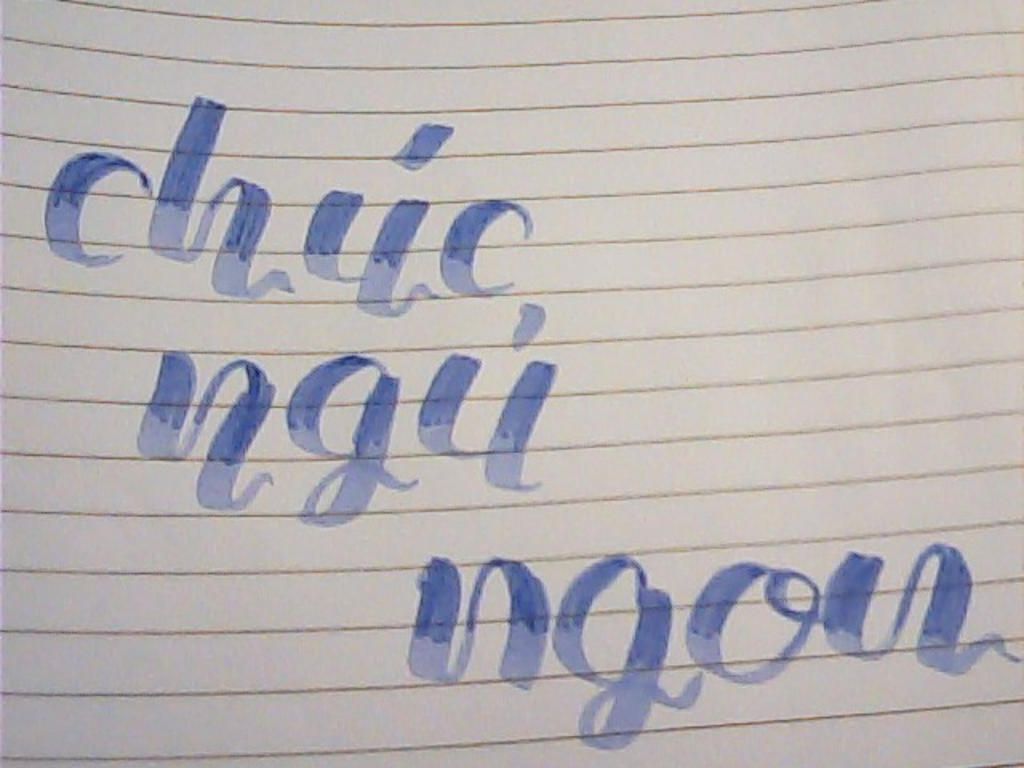 chúc
ngủ
ngon